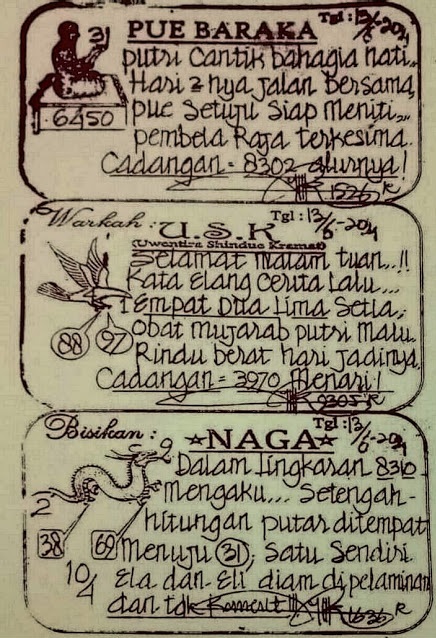 31
PUE BARAKA
Tgl : 13/6-2024
6450
putri Cantik bahagia hati,,
Hari 2 nya jalan Bersama,
pue Setuju Siap Meniti,,,
pembela Raja terkesima.
Cadangan = 8302 alurnya!
1526 R
Warkah : U.S.K
Tgl : 13/6-2024
(Uwentira Shindue Kramat)
Selamat malam tuan...!!
Kata Elang Cerita Lalu...
Empat Dua Lima Setia,
88 97
Obat Mujarab putri Malu.
Rindu berat hari jadinya,
Cadangan = 3970 Menari!
9305 R
Bisikan : ☆NAGA☆
Tgl : 13/6-2024
9
Dalam lingkaran 8310
Mengaku,,, Setengah-
2
hitungan putar ditempat
38 69
Menuju (31), Satu Sendiri
10/4
Ela dan Eli diam dipelaminan
dan tdk
1636 R